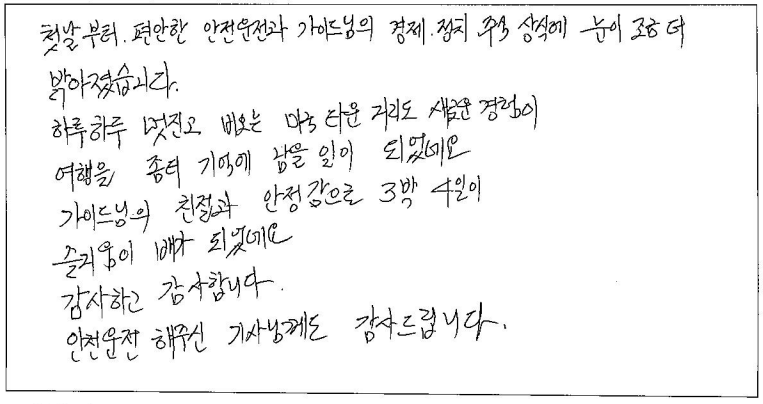 첫날부터. 편안한 안전운전과 가이드님의 경제.정치 주식 상식에 눈이 조금 더
밝아졌습니다.
하루하루 멋진고 비오는 미국 타운 거리도 새로운 경험이
여행을 좀더 기억에 남을 일이 되었네요
가이드님의 친절과 안정감으로 3박 4일이
즐거움이 배가 되었네요
감사하고 감사합니다.
안전운전 해주신 기사님께도 감사드립니다.